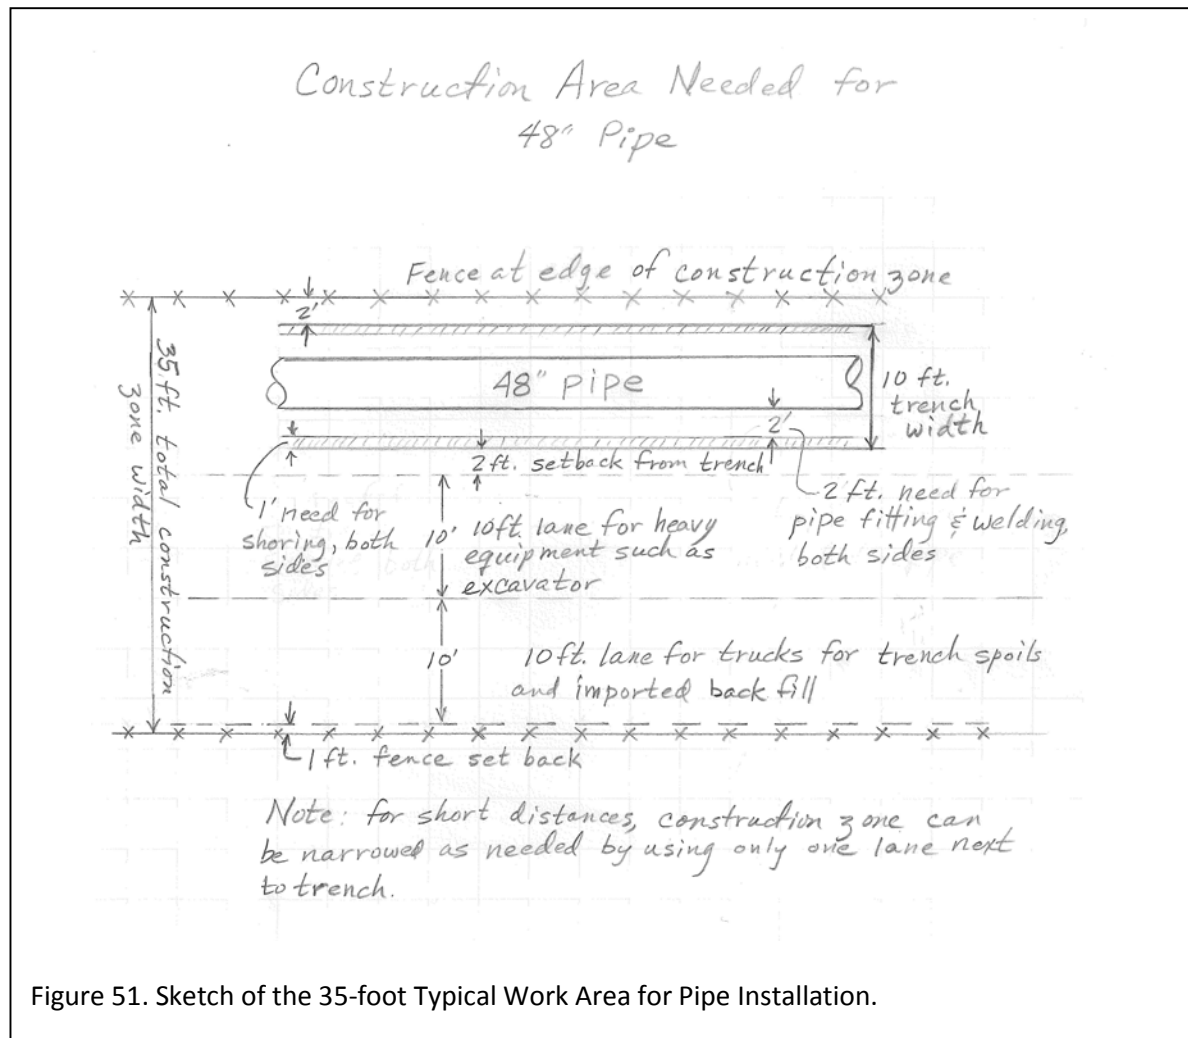 Construction Area Needed for
48" Pipe
Fence at edge of construction zone
2'
35 ft. total construction
zone width
48" pipe
10 ft.
trench
width
2'
2 ft. setback from trench
1' need for
shoring, both
sides
10'
10ft. lane for heavy
equipment such as
excavator
2 ft. need for
pipe fitting & welding,
both sides
10'
10ft. lane for trucks for trench spoils
and imported back fill
1 ft. fence set back
Note: for short distances, construction zone can
be narrowed as needed by using only one lane next
to trench.
Figure 51. Sketch of the 35-foot Typical Work Area for Pipe Installation.